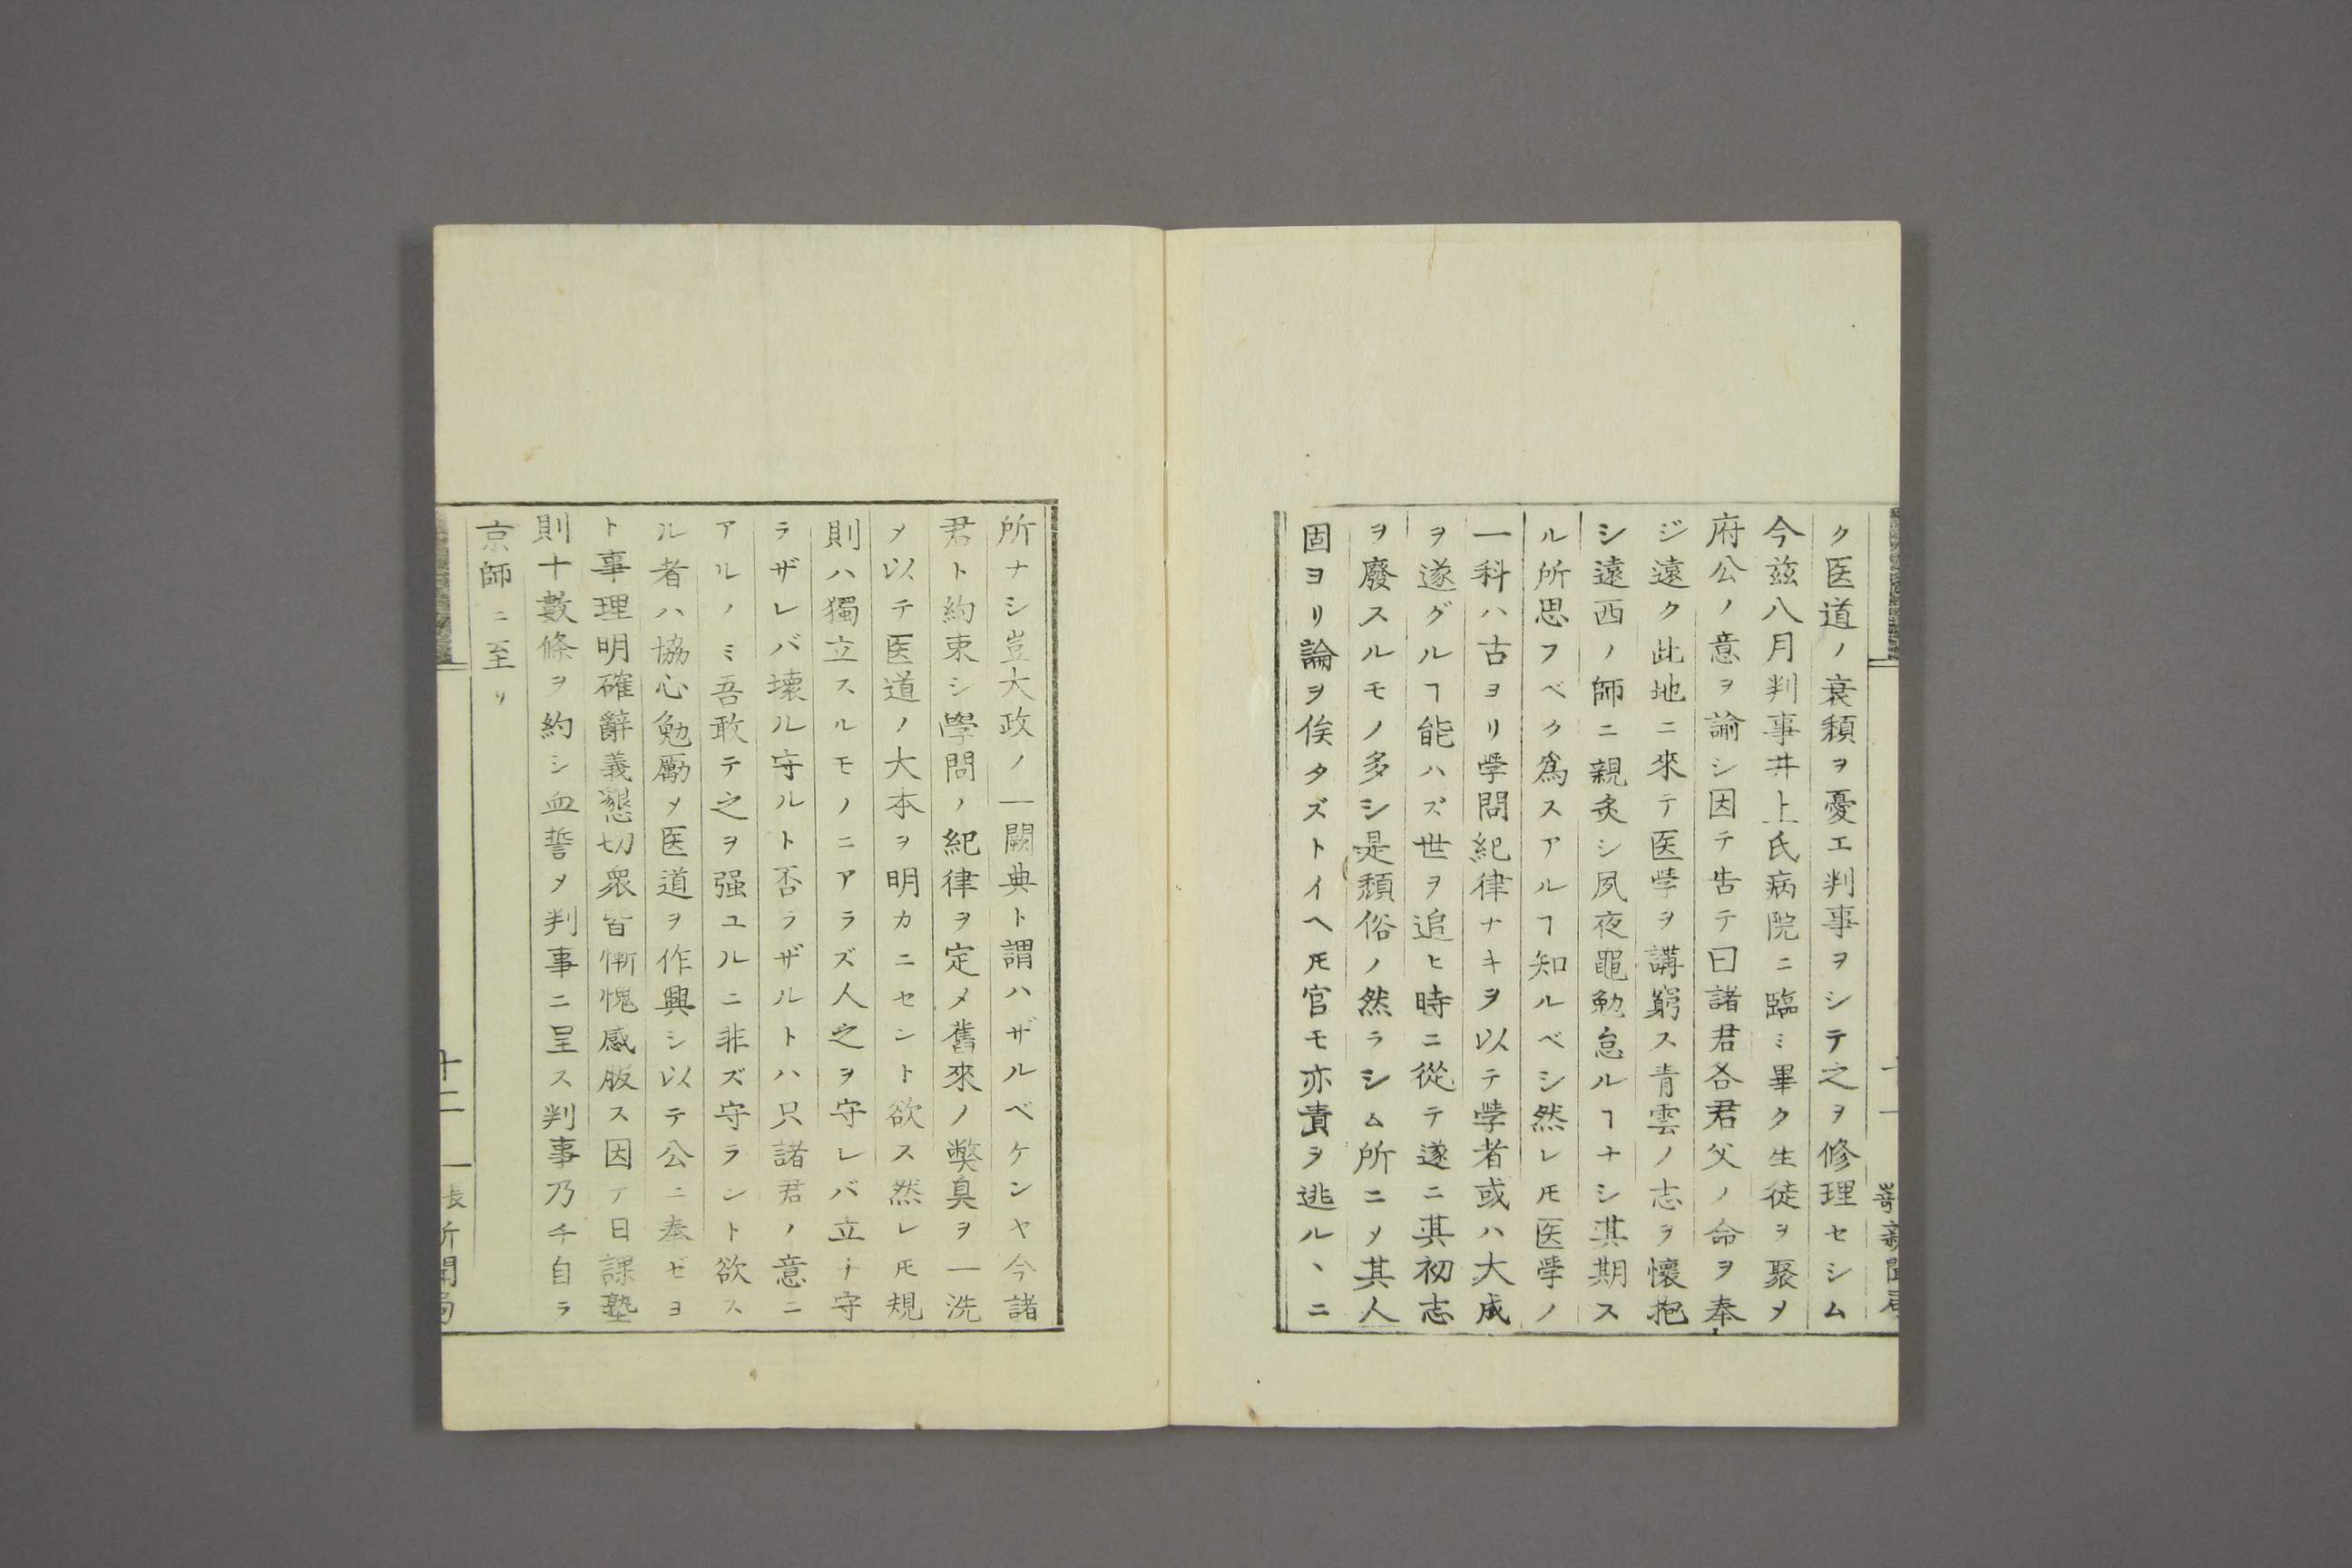 ク医道ノ衰頽ヲ憂エ判事ヲシテ之ヲ修理セシム
今玆八月判事井上氏病院ニ臨ミ畢ク生徒ヲ聚メ
府公ノ意ヲ諭シ因テ告テ曰諸君各君父ノ命ヲ奉
ジ遠ク此地ニ來テ医学ヲ講窮ス青雲ノ志ヲ懐抱
シ遠西ノ師ニ親炙シ夙夜黽勉怠ルヿナシ其期ス
ル所思フベク為スアルヿ知ルベシ然レ𪜈医学ノ
一科ハ古ヨリ学問紀律ナキヲ以テ学者或ハ大成
ヲ遂グルヿ能ハズ世ヲ追ヒ時ニ從テ遂ニ其初志
ヲ廢スルモノ多シ是頽俗ノ然ラシム所ニメ其人
固ヨリ論ヲ俟タズトイヘ𪜈官モ亦責ヲ逃ルヽニ
所ナシ豈大政ノ一闕典ト謂ハザルベケンヤ今諸
君ト約束シ學問ノ紀律ヲ定メ舊來ノ獘臭ヲ一洗
メ以テ医道ノ大本ヲ明カニセント欲ス然レ𪜈規
則ハ獨立スルモノニアラズ人之ヲ守レバ立チ守
ラザレバ壊ル守ルト否ラザルトハ只諸君ノ意ニ
アルノミ吾敢テ之ヲ强ユルニ非ズ守ラント欲ス
ル者ハ協心勉勵メ医道ヲ作興シ以テ公ニ奉ゼヨ
ト事理明確辭義懇切衆皆慚愧感服ス因テ日課塾
則十數條ヲ約シ血誓メ判事ニ呈ス判事乃チ自ラ
京師ニ至リ
十二